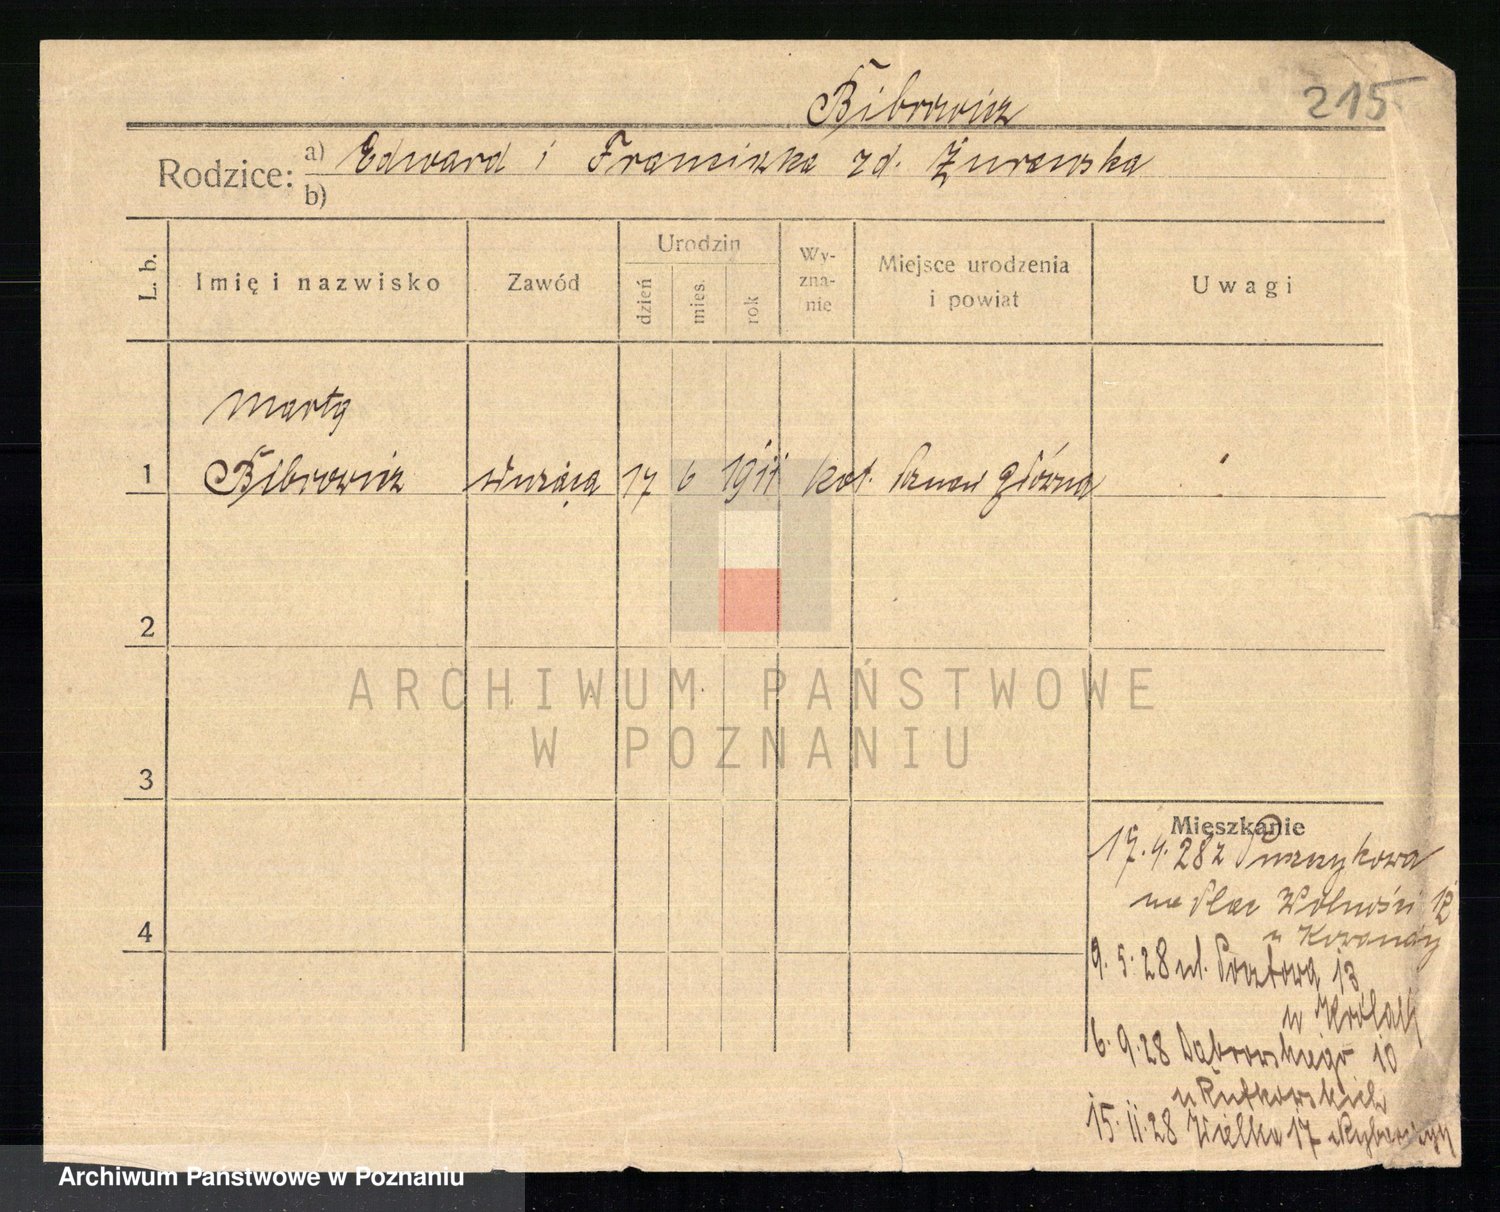 215
Bibrowicz
Rodzice: a) Edward i Franciszka zd. Żurawska
b)
L. b.
Imię i nazwisko
Zawód
Urodzin
dzień
mies.
rok
Wy-
zna-
nie
Miejsce urodzenia
i powiat
Uwagi
Marta
1 Bibrowicz służąca 17 6 1911 kat. Główna
2
3
4
ARCHIWUM PAŃSTWOWE
W POZNANIU
Mieszkanie
17.4.28 z
na Plac Wolności 12
9.5.28 ul. Pocztowa 13
u
6.9.28 Dąbrowskiego 10
u Rutkowskich
15.11.28 Wielka 17
Archiwum Państwowe w Poznaniu